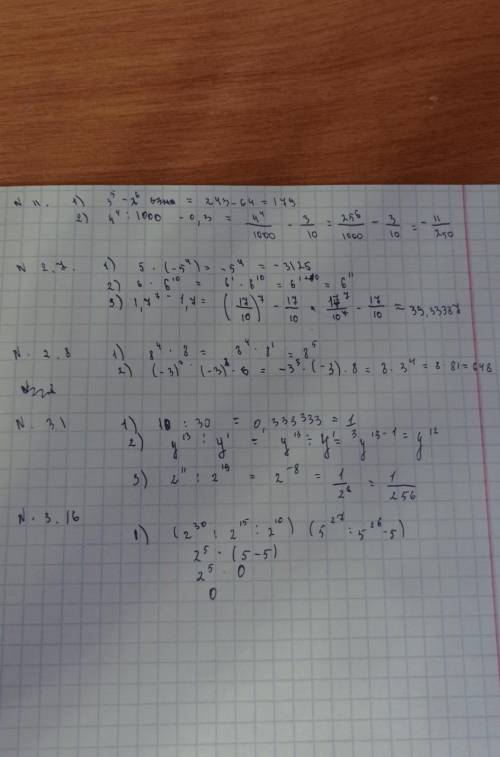 N 11. 1) 3⁵ - 2⁶ = 243-64 = 179
2) 4⁴ : 1000 - 0,3 = 4⁴/1000 - 3/10 = 256/1000 - 3/10 = - 11/250
N 2.7. 1) 5 · (-5⁴) = -5⁵ = -3125
2) 6 · 6¹⁰ = 6¹ · 6¹⁰ = 6¹⁺¹⁰ = 6¹¹
3) 1,7⁷ - 1,7 = (17/10)⁷ - 17/10 = 17⁷/10⁷ - 17/10 ≈ 39,33387
N. 2.8 1) 8⁴ · 8 = 8⁴ · 8¹ = 8⁵
2) = -3³ · (-3) · 8 = 8 · 3⁴ = 8 · 81 = 648
N. 31 1) 10 : 30 = 0,333333 = 1/3
2) y¹³ : y¹ = y¹³ : y¹ = y¹³⁻¹ = y¹²
3) 2¹¹ : 2¹⁹ = 2⁻⁸ = 1/2⁸ = 1/256
N. 3.16
1) (2³⁰ : 2¹⁵ : 2¹⁰) (5²⁷ : 5²⁶ - 5)
2⁵ · (5-5)
2⁵ · 0
0